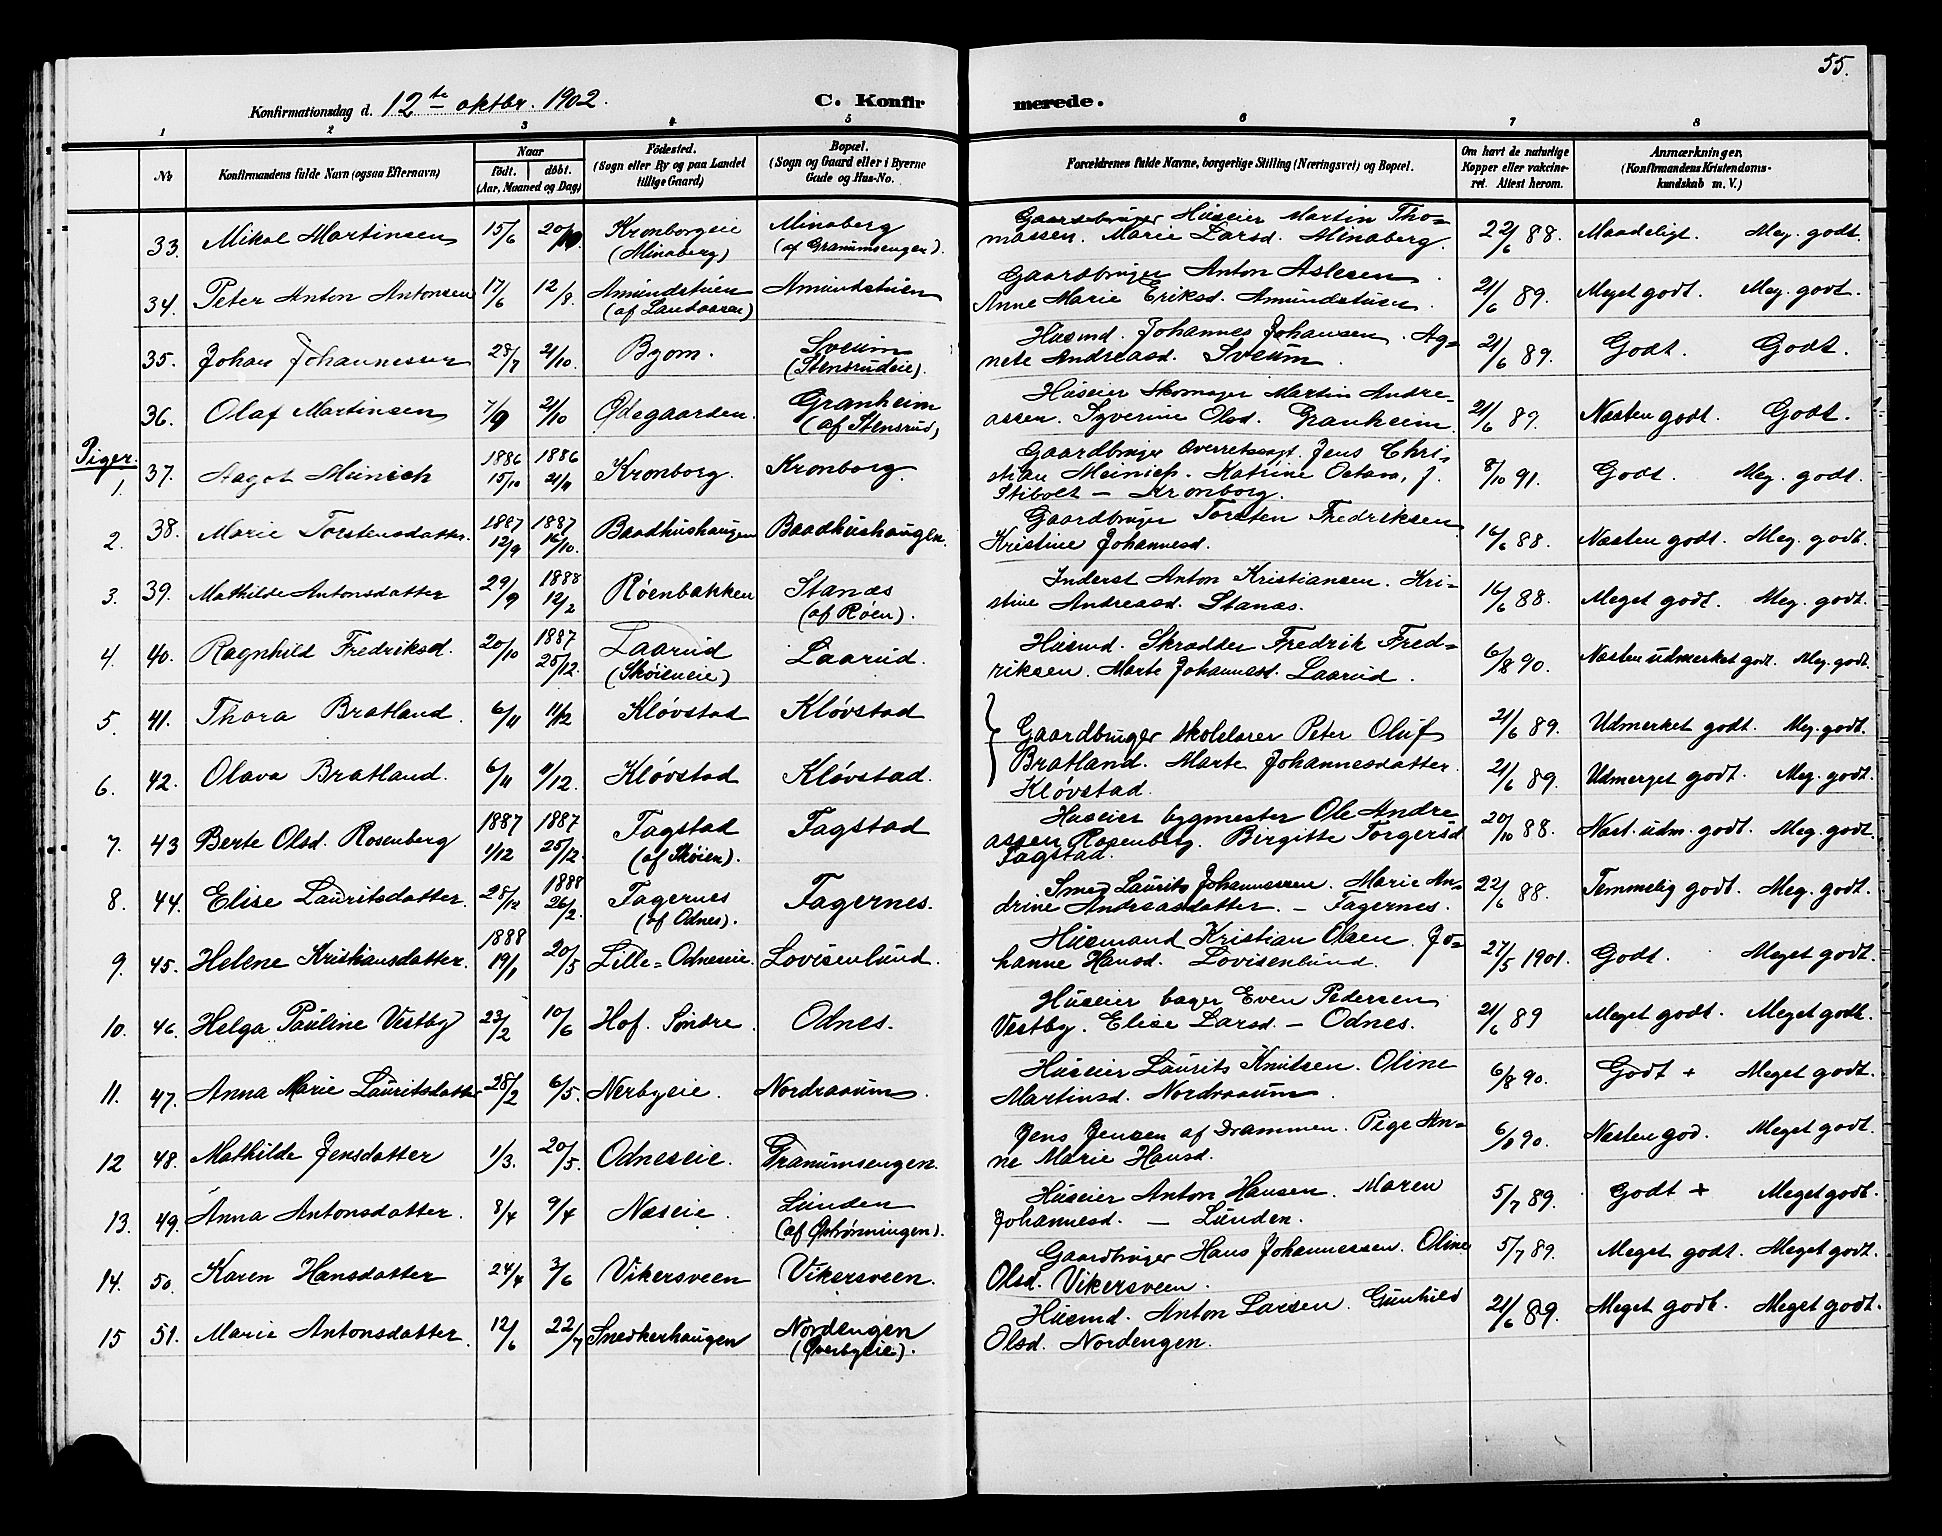 55.
Konfirmationsdag d. 12te oktbr. 1902.
C. Konfirmerede.
1 2 3 4 5 6 7 8
No
Konfirmandens fulde Navn (ogsaa Efternavn)
Naar
født. døbt.
(Aar, Maaned og Dag)
Fødested.
(Sogn eller By og paa Landet
tillige Gaard)
Bopæl.
(Sogn og Gaard eller i Byerne
Gade og Hus-No.
Forældrenes fulde Navne, borgerlige Stilling (Næringsvei) og Bopæl.
Om havt de naturlige
Kopper eller vakcine-
ret. Attest herom.
Anmærkninger.
(Konfirmandens Kristendoms-
kundskab m. V.)
33. Mikal Martinsen 15/6 20/10 Kronborgeie (Minaberg) Minaberg (af Granumsengen). Gaardbruger Huseier Martin Tho-
massen. Marie Larsd. Minaberg. 22/6 88. Maadeligt. Meg. godt.
34. Peter Anton Antonsen 17/6 12/8. Amundstuen (af Landaasen) Amundstuen Gaardbruger Anton Aslesen
Anne Marie Eriksd. Amundstuen 21/6 89. Meget godt. Meg. godt.
35. Johan Johannessen 28/7 21/10. Byom. Sveum (Stensrudeie). Husmd. Johannes Johansen. Ag-
nete Andreasd. Sveum. 21/6 89. Godt. Godt.
36. Olaf Martinsen 7/9 21/10 Ødegaarden. Granheim (af Stensrud) Huseier Skomager Martin Andre-
assen. Syverine Olsd. Granheim. 21/6 89. Næsten godt. Godt.
Piger.
1. 37. Aagot Meinich 1886 15/10 1886 21/11 Kronborg. Kronborg. Gaardbruger Overretssagf. Jens Chri-
stian Meinich. Katrine Octava, f.
Stibolt — Kronborg. 8/10 91. Godt. Meg. godt.
2. 38. Marie Torstensdatter. 1887 12/9 1887 16/10. Baadhushaugen Baadhushaugen. Gaardbruger Torsten Fredriksen
Kristine Johannesd. 16/6 88. Næsten godt. Meg. godt.
3. 39. Mathilde Antonsdatter 29/9 1888 12/2 Røenbakken Stanæs (af Røen). Inderst Anton Kristiansen. Kri-
stine Andreasd. Stanæs. 16/6 88. Meget godt. Meg. godt.
4. 40. Ragnhild Fredriksd. 20/10 1887 25/12. Laarud (Skøieneie) Laarud. Husmd. Skrædder Fredrik Fred-
riksen. Marte Johannesd. Laarud. 6/8 90. Næsten udmerket godt. Meg. godt.
5. 41. Thora Bratland. 6/11 11/12 Kløvstad Kløvstad 21/6 89. Udmerket godt. Meg. godt.
Gaardbruger skolelærer Peter Oluf
Bratland. Marte Johannesdatter.
Kløvstad.
6. 42. Olava Bratland. 6/11 11/12. Kløvstad Kløvstad. 21/6 89. Udmerget godt. Meg. godt.
7. 43 Berte Olsd. Rosenberg 1887 1/12 1887 25/12. Fagstad (af Skøien). Fagstad Huseier bygmester Ole Andre
assen Rosenberg. Birgitte Torgersd.
Fagstad. 20/10 88. Næst. udm. godt. Meg. godt.
8. 44. Elise Lauritsdatter. 28/12 1888 26/2. Fagernes (af Odnes). Fagernes. Smed Laurits Johannessen. Marie An-
drine Andreasdatter. — Fagernes. 22/6 88. Temmelig godt. Meg. godt.
9. 45. Helene Kristiansdatter. 1888 19/1 20/5 Lille-Odneseie. Lovisenlund. Husmand Kristian Olsen. Jo-
hanne Hansd. Lovisenlund. 27/5 1901. Godt. Meget godt.
10. 46. Helga Pauline Vestby 23/2 10/6 Hof. Søndre. Odnes. Huseier bager Even Pedersen
Vestby. Elise Larsd. — Odnes. 21/6 89 Meget godt. Meget godt.
11. 47. Anna Marie Lauritsdatter 28/2 6/5. Nerbyeie. Nordraaum. Huseier Laurits Knutsen. Oline
Martinsd. Nordraaum. 6/8 90. Godt + Meget godt.
12 48. Mathilde Jensdatter 1/3. 20/5. Odneseie. Granumsengen. Jens Jensen af Drammen. Pige An-
ne Marie Hansd. 6/8 90. Næsten god. Meget godt.
13. 49. Anna Antonsdatter. 8/4 9/4 Næseie. Lunden (af Østrønningen). Huseier Anton Hansen. Maren
Johannesd. — Lunden. 5/7 89. Godt + Meget godt.
14. 50. Karen Hansdatter 24/4 3/6 Vikersveen Vikersveen. Gaardbruger Hans Johannessen. Oline
Olsd. Vikersveen. 5/7 89. Meget godt. Meget godt.
15 51. Marie Antonsdatter. 12/6 22/7 Snedkerhaugen Nordengen (Øverbyeie). Husmd. Anton Larsen. Gunhild
Olsd. Nordengen. 21/6 89. Meget godt. Meget godt.